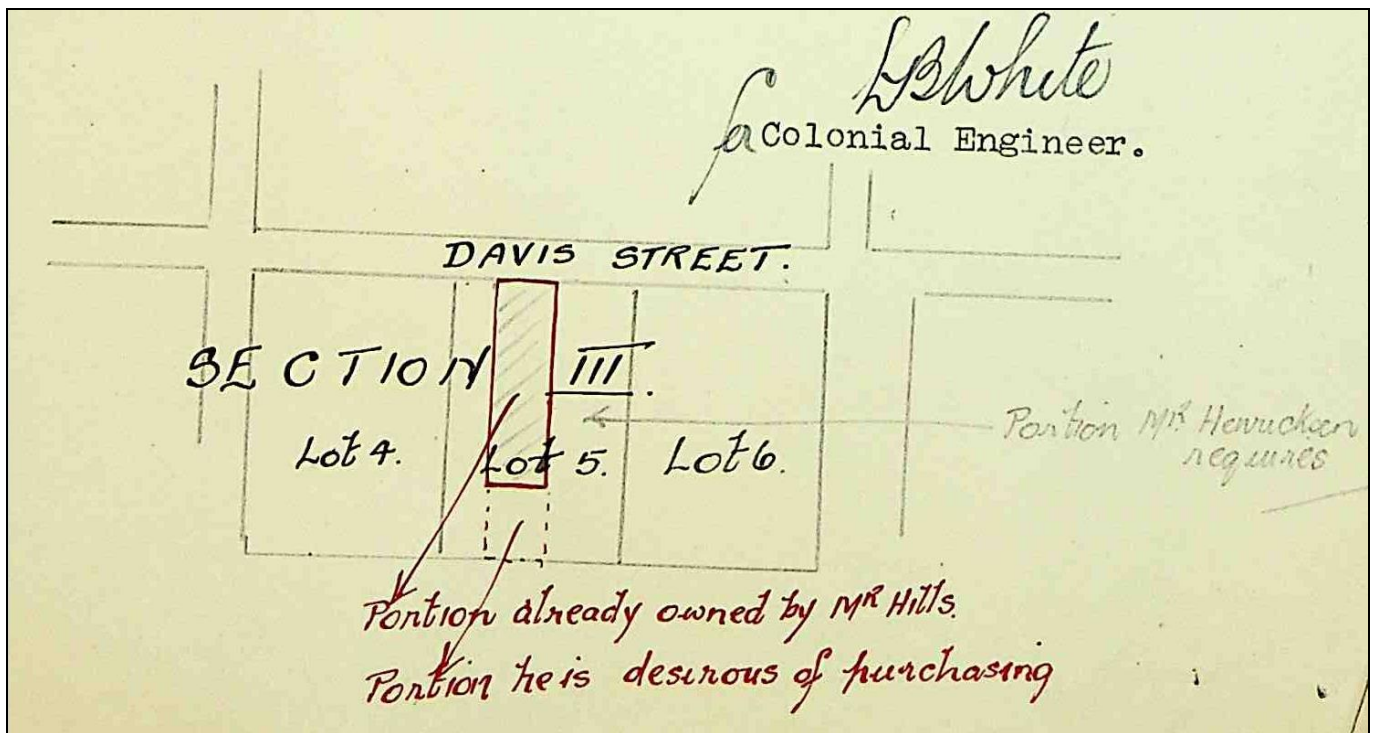 LBWhite
for Colonial Engineer.
DAVIS STREET.
SECTION III.
Lot 4. Lot 5. Lot 6.
Portion Mr Henricksen
requires
Portion already owned by Mr Hills.
Portion he is desirous of purchasing